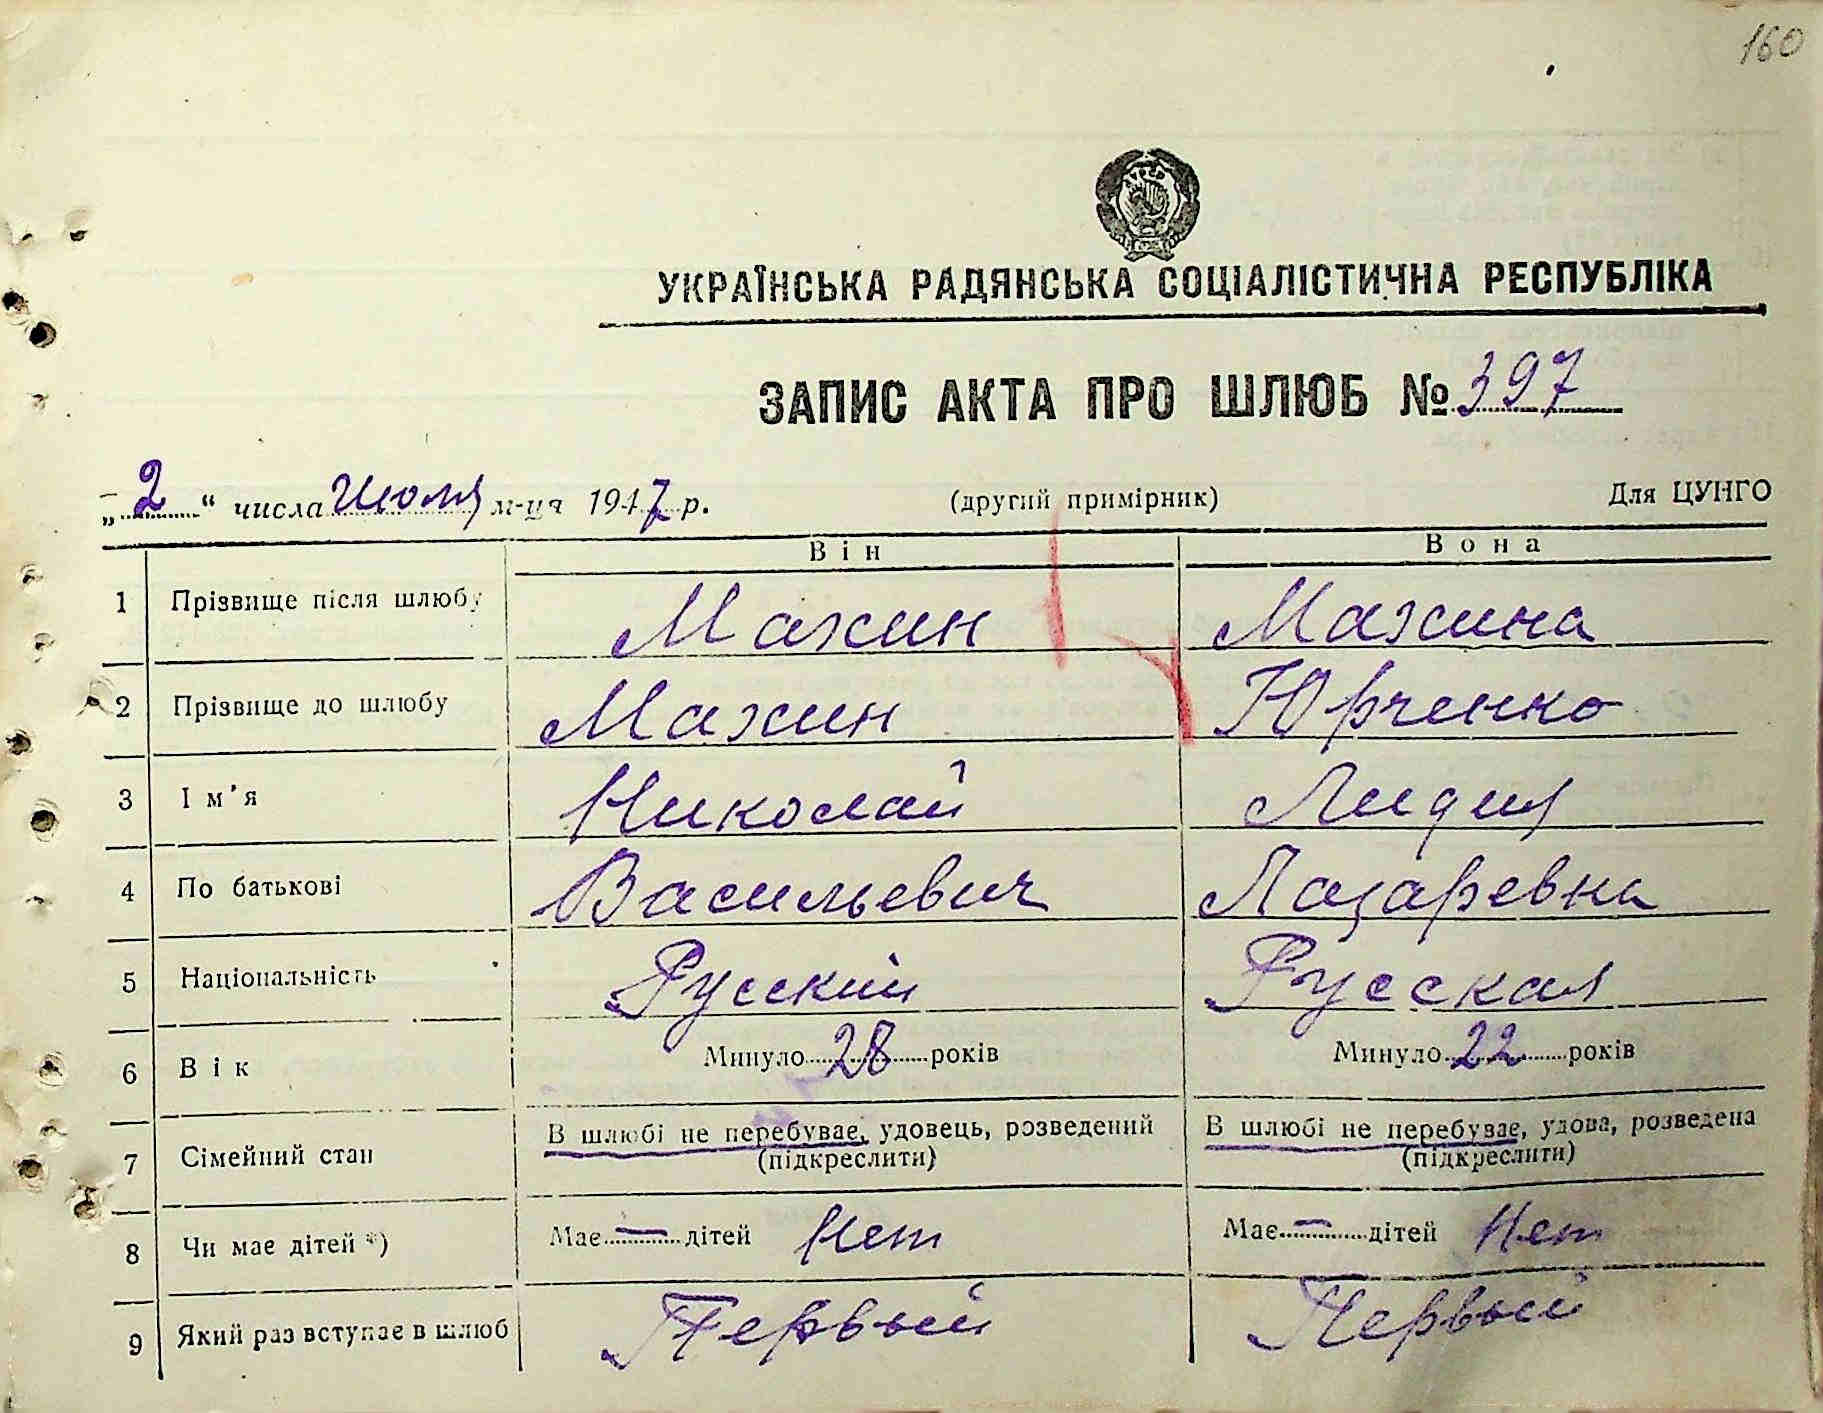 160
УРСР
УКРАЇНСЬКА РАДЯНСЬКА СОЦІАЛІСТИЧНА РЕСПУБЛІКА
ЗАПИС АКТА ПРО ШЛЮБ № 397
„2“ числа Июля м-ця 1947 р. (другий примірник) Для ЦУНГО
Він Вона
1 Прізвище після шлюбу Мажин Мажина
2 Прізвище до шлюбу Мажин Юрченко
3 Ім'я Николай Лидия
4 По батькові Васильевич Лазаревна
5 Національність Русский Русская
6 Вік Минуло 28 років Минуло 22 років
7 Сімейний стан В шлюбі не перебуває, удовець, розведений (підкреслити) В шлюбі не перебуває, удова, розведена (підкреслити)
8 Чи має дітей *) Має — дітей Нет Має — дітей Нет
9 Який раз вступає в шлюб Первый Первый